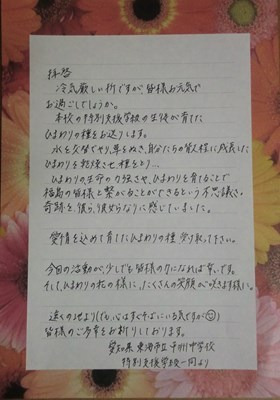 拝啓
冷気厳しい折ですが、皆様お元気で
お過ごしでしょうか。
本校の特別支援学校の生徒が育てた
ひまわりの種をお送りします。
水を欠かせずやり、草をぬき、自分たちの背以上様に成長した
ひまわりを乾燥させ、種をとり…
ひまわりの生命の力強さや、ひまわりを育てることで
福島の皆様と繋がることができるという不思議さ、
奇跡を、僕ら、彼女らなりに感じていました。
愛情を込めて育てたひまわりの種、受け取って下さい。
今回の活動が、少しでも皆様の力になれば幸いです。
そして、ひまわりの花の様に、たくさんの笑顔が咲きます様に。
遠くの地より(でも、心はすぐそばにいる気ですが☺)
皆様のご多幸をお祈りしております。
愛知県 東海市立 平洲中学校
特別支援学校一同より